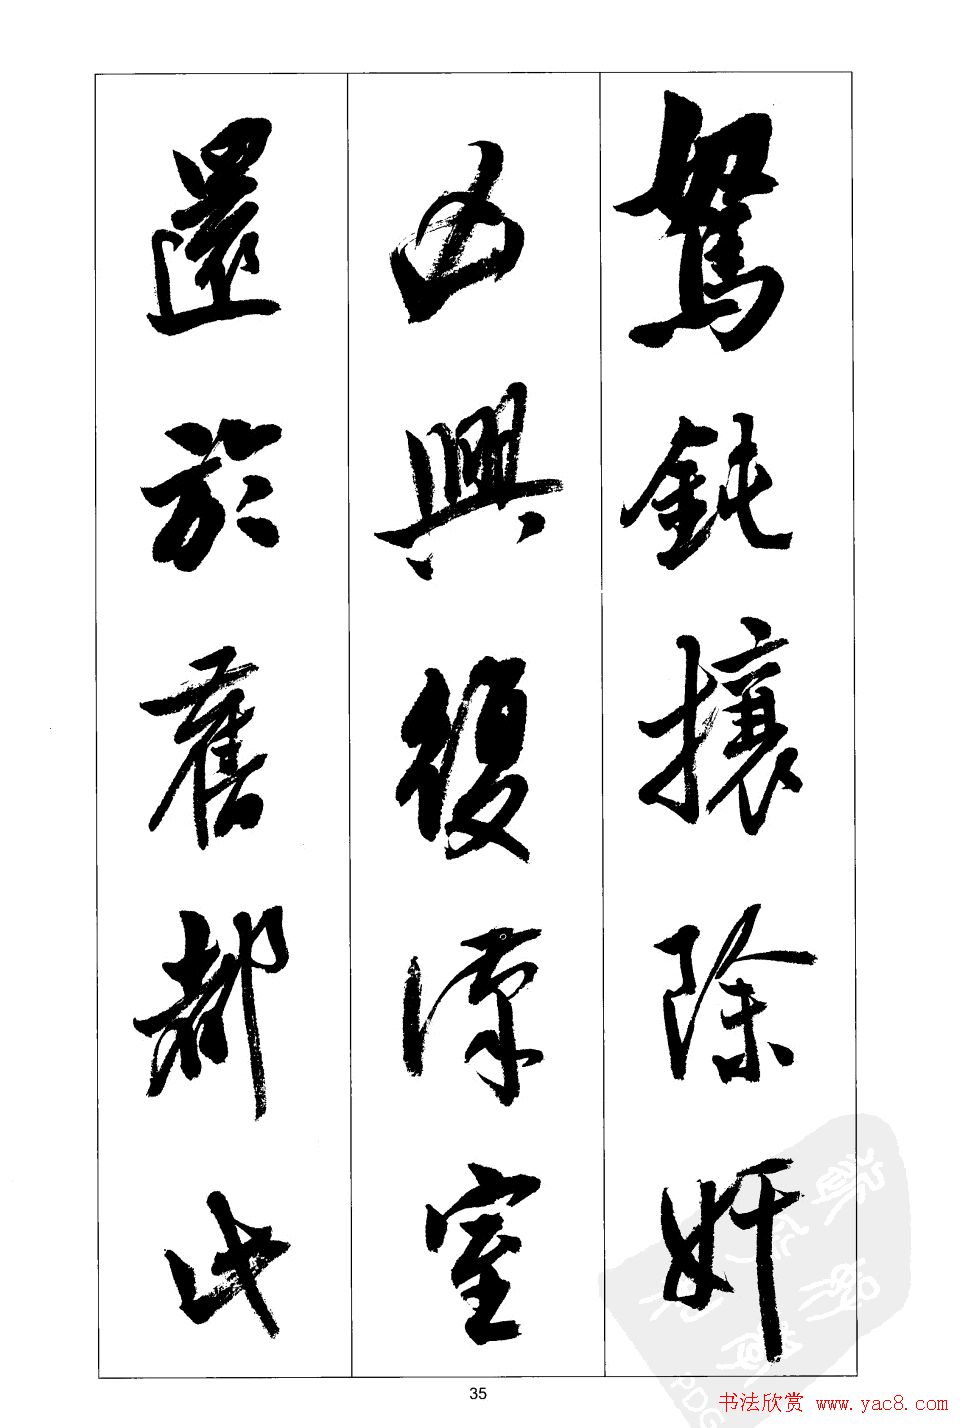 駑鈍攘除奸
凶興復漢室
還於舊都此
35
PDG
书法欣赏 www.yac8.com